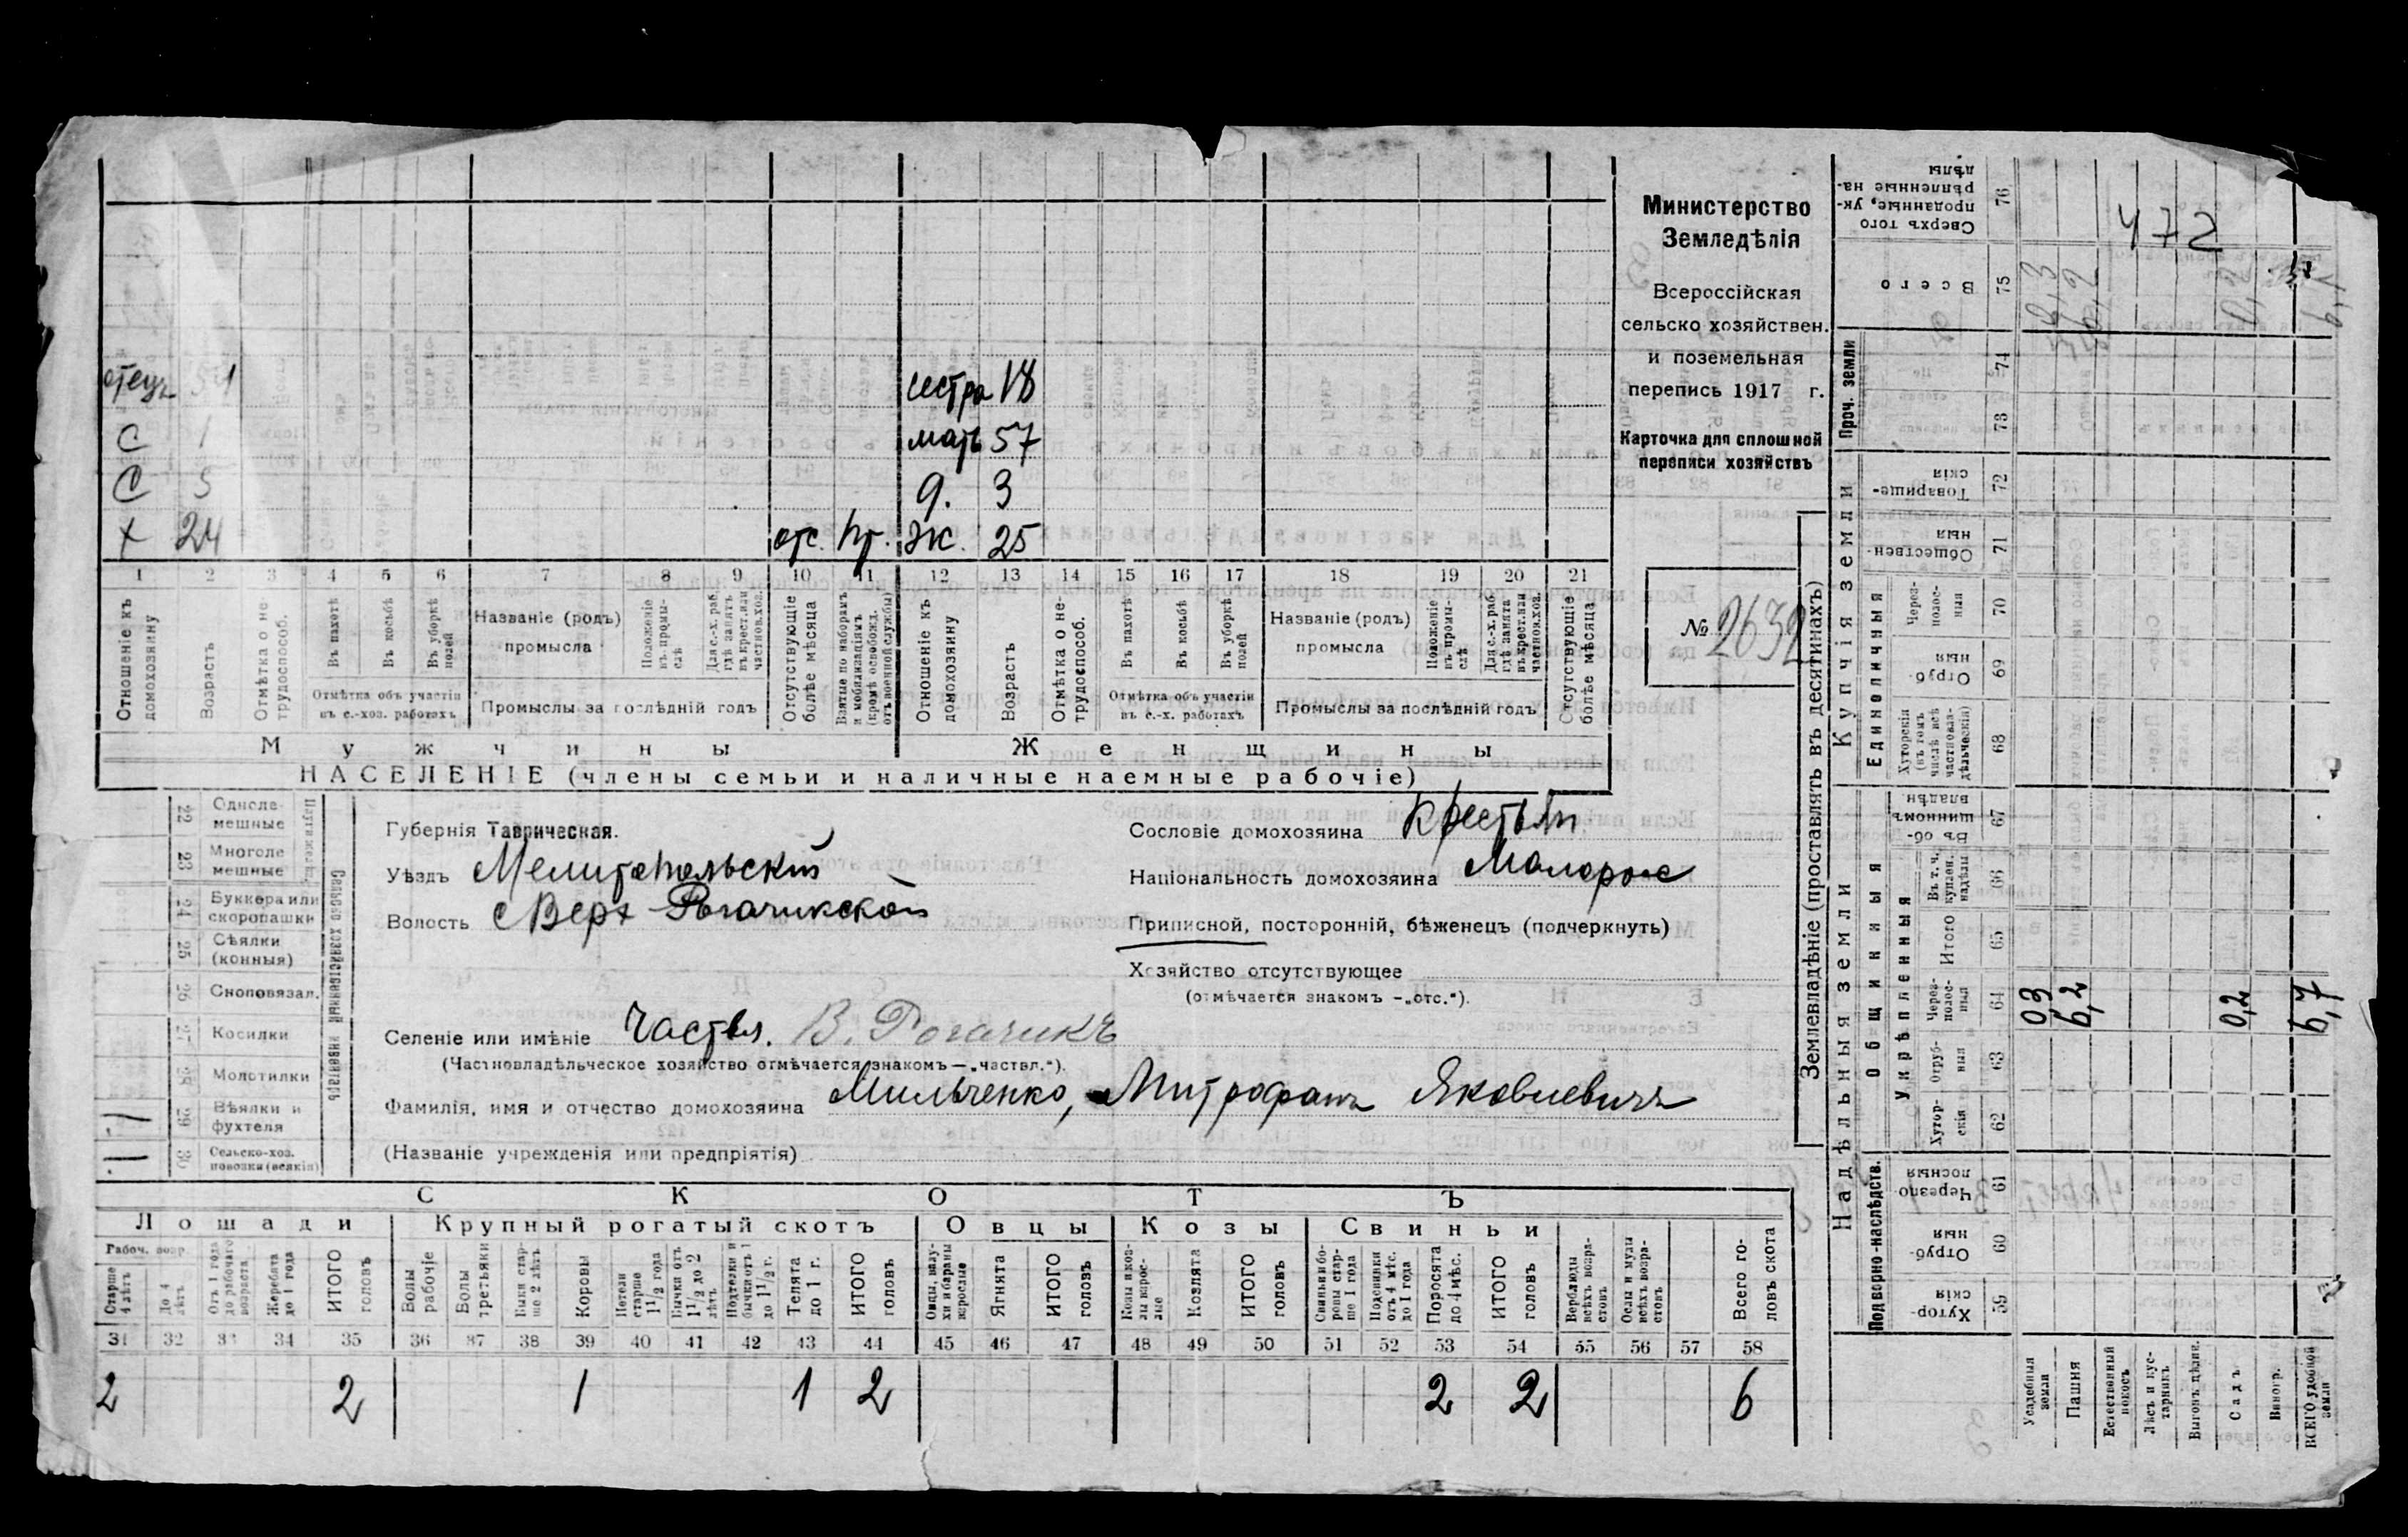 отецъ 51 сестра 18
С 1 мать 57
С 5 д. 3
х 24 отс. Жк. 25
1 2 3 4 5 6 7 8 9 10 11 12 13 14 15 16 17 18 19 20 21
Отношеніе къ домохозяину
Возрастъ
Отмѣтка о не-трудоспособ.
Въ пахотѣ
Въ косьбѣ
Въ уборкѣ полей
Отмѣтка объ участіи въ с.-хоз. работахъ
Названіе (родъ) промысла
Положеніе въ промы-слѣ
Для с.-х. раб. гдѣ занятъ въ крест. или частнов. хоз.
Промыслы за послѣдній годъ
Отсутствующіе болѣе мѣсяца
Взятые по наборамъ и мобилизаціямъ (кромѣ освобожд. отъ военной службы)
Отношеніе къ домохозяину
Возрастъ
Отмѣтка о не-трудоспособ.
Въ пахотѣ
Въ косьбѣ
Въ уборкѣ полей
Отмѣтка объ участіи въ с.-х. работахъ
Названіе (родъ) промысла
Положеніе въ промы-слѣ
Для с.-х. раб. гдѣ занята въ крест. или частнов. хоз.
Промыслы за послѣдній годъ
Отсутствующіе болѣе мѣсяца
Мужчины Женщины
НАСЕЛЕНІЕ (члены семьи и наличные наемные рабочіе)
Министерство
Земледѣлія
Всероссійская
сельско хозяйствен.
и поземельная
перепись 1917 г.
Карточка для сплошной
переписи хозяйствъ
№ 2632
22 Одноле-мешные
23 Многоле мешные
24 Буккера или скоропашки
25 Сѣялки (конныя)
26 Сноповязал.
27 Косилки
28 Молотилки
29 Вѣялки и фухтеля 1
30 Сельско-хоз. повозки (всякія) 1
Сельско хозяйственный инвентарь
Губернія Таврическая.
Уѣздъ Мелитопольскій
Волость Верх Рогачикской
Сословіе домохозяина Крестьян
Національность домохозяина Малоросс
Приписной, посторонній, бѣженецъ (подчеркнуть)
Хозяйство отсутствующее
(отмѣчается знакомъ -„отс.“).
Селеніе или имѣніе Частвл. В. Рогачикъ
(Частновладѣльческое хозяйство отмѣчается знакомъ — „частвл.“).
Фамилія, имя и отчество домохозяина Мильченко, Митрофанъ Яковлевичъ
(Названіе учрежденія или предпріятія)
СКОТЪ
Лошади Крупный рогатый скотъ Овцы Козы Свиньи
Рабоч. возр.
Старше 4 лѣтъ
До 4 лѣтъ
Отъ 1 года до рабочаго возраста
Жеребята до 1 года
ИТОГО головъ
Волы рабочіе
Волы третьяки
Быки стар-ше 2 лѣтъ
Коровы
Нетели старше 1 1/2 года
Бычки отъ 1 1/2 до 2 лѣтъ
Подтелки и бычки отъ 1 до 1 1/2 г.
Телята до 1 г.
ИТОГО головъ
Овцы, валу-хи и бараны взрослые
Ягнята
ИТОГО головъ
Козы и коз-лы взрос-лые
Козлята
ИТОГО головъ
Свиньи и бо-ровы стар-ше 1 года
Подсвинки отъ 4 мѣс. до 1 года
Поросята до 4 мѣс.
ИТОГО головъ
Верблюды всѣхъ возра-стовъ
Ослы и мулы всѣхъ возра-стовъ
Всего го-ловъ скота
31 32 33 34 35 36 37 38 39 40 41 42 43 44 45 46 47 48 49 50 51 52 53 54 55 56 57 58
2 2 1 1 2 2 2 6
Землевладѣніе (проставлять въ десятинахъ)
Надѣльныя земли Купчія земли Проч. земли
Подворно-наслѣдств. Общинныя Единоличныя
Укрѣпленныя
Хутор-скія 59
Отруб-ныя 60
Черезпо-лосныя 61
Хутор-скія 62
Отруб-ныя 63
Через-полос-ныя 64
Итого 65
Въ т. ч. куплен. надѣлы 66
Въ об-щинномъ владѣн. 67
Хуторскія (въ томъ числѣ всѣ частновла-дѣльческія) 68
Отруб-ныя 69
Через-полос-ныя 70
Обществен-ныя 71
Товарище-скія 72
73
74
Всего 75
Сверхъ того проданные, ук-рѣпленные на-дѣлы 76
Усадебныя земли 03
Пашня 6,2
Естественный покосъ
Лѣсъ и кус-тарникъ
Выгонъ дѣлин.
Садъ 0,2
Виногр.
ВСЕГО удобной земли 6,7
472